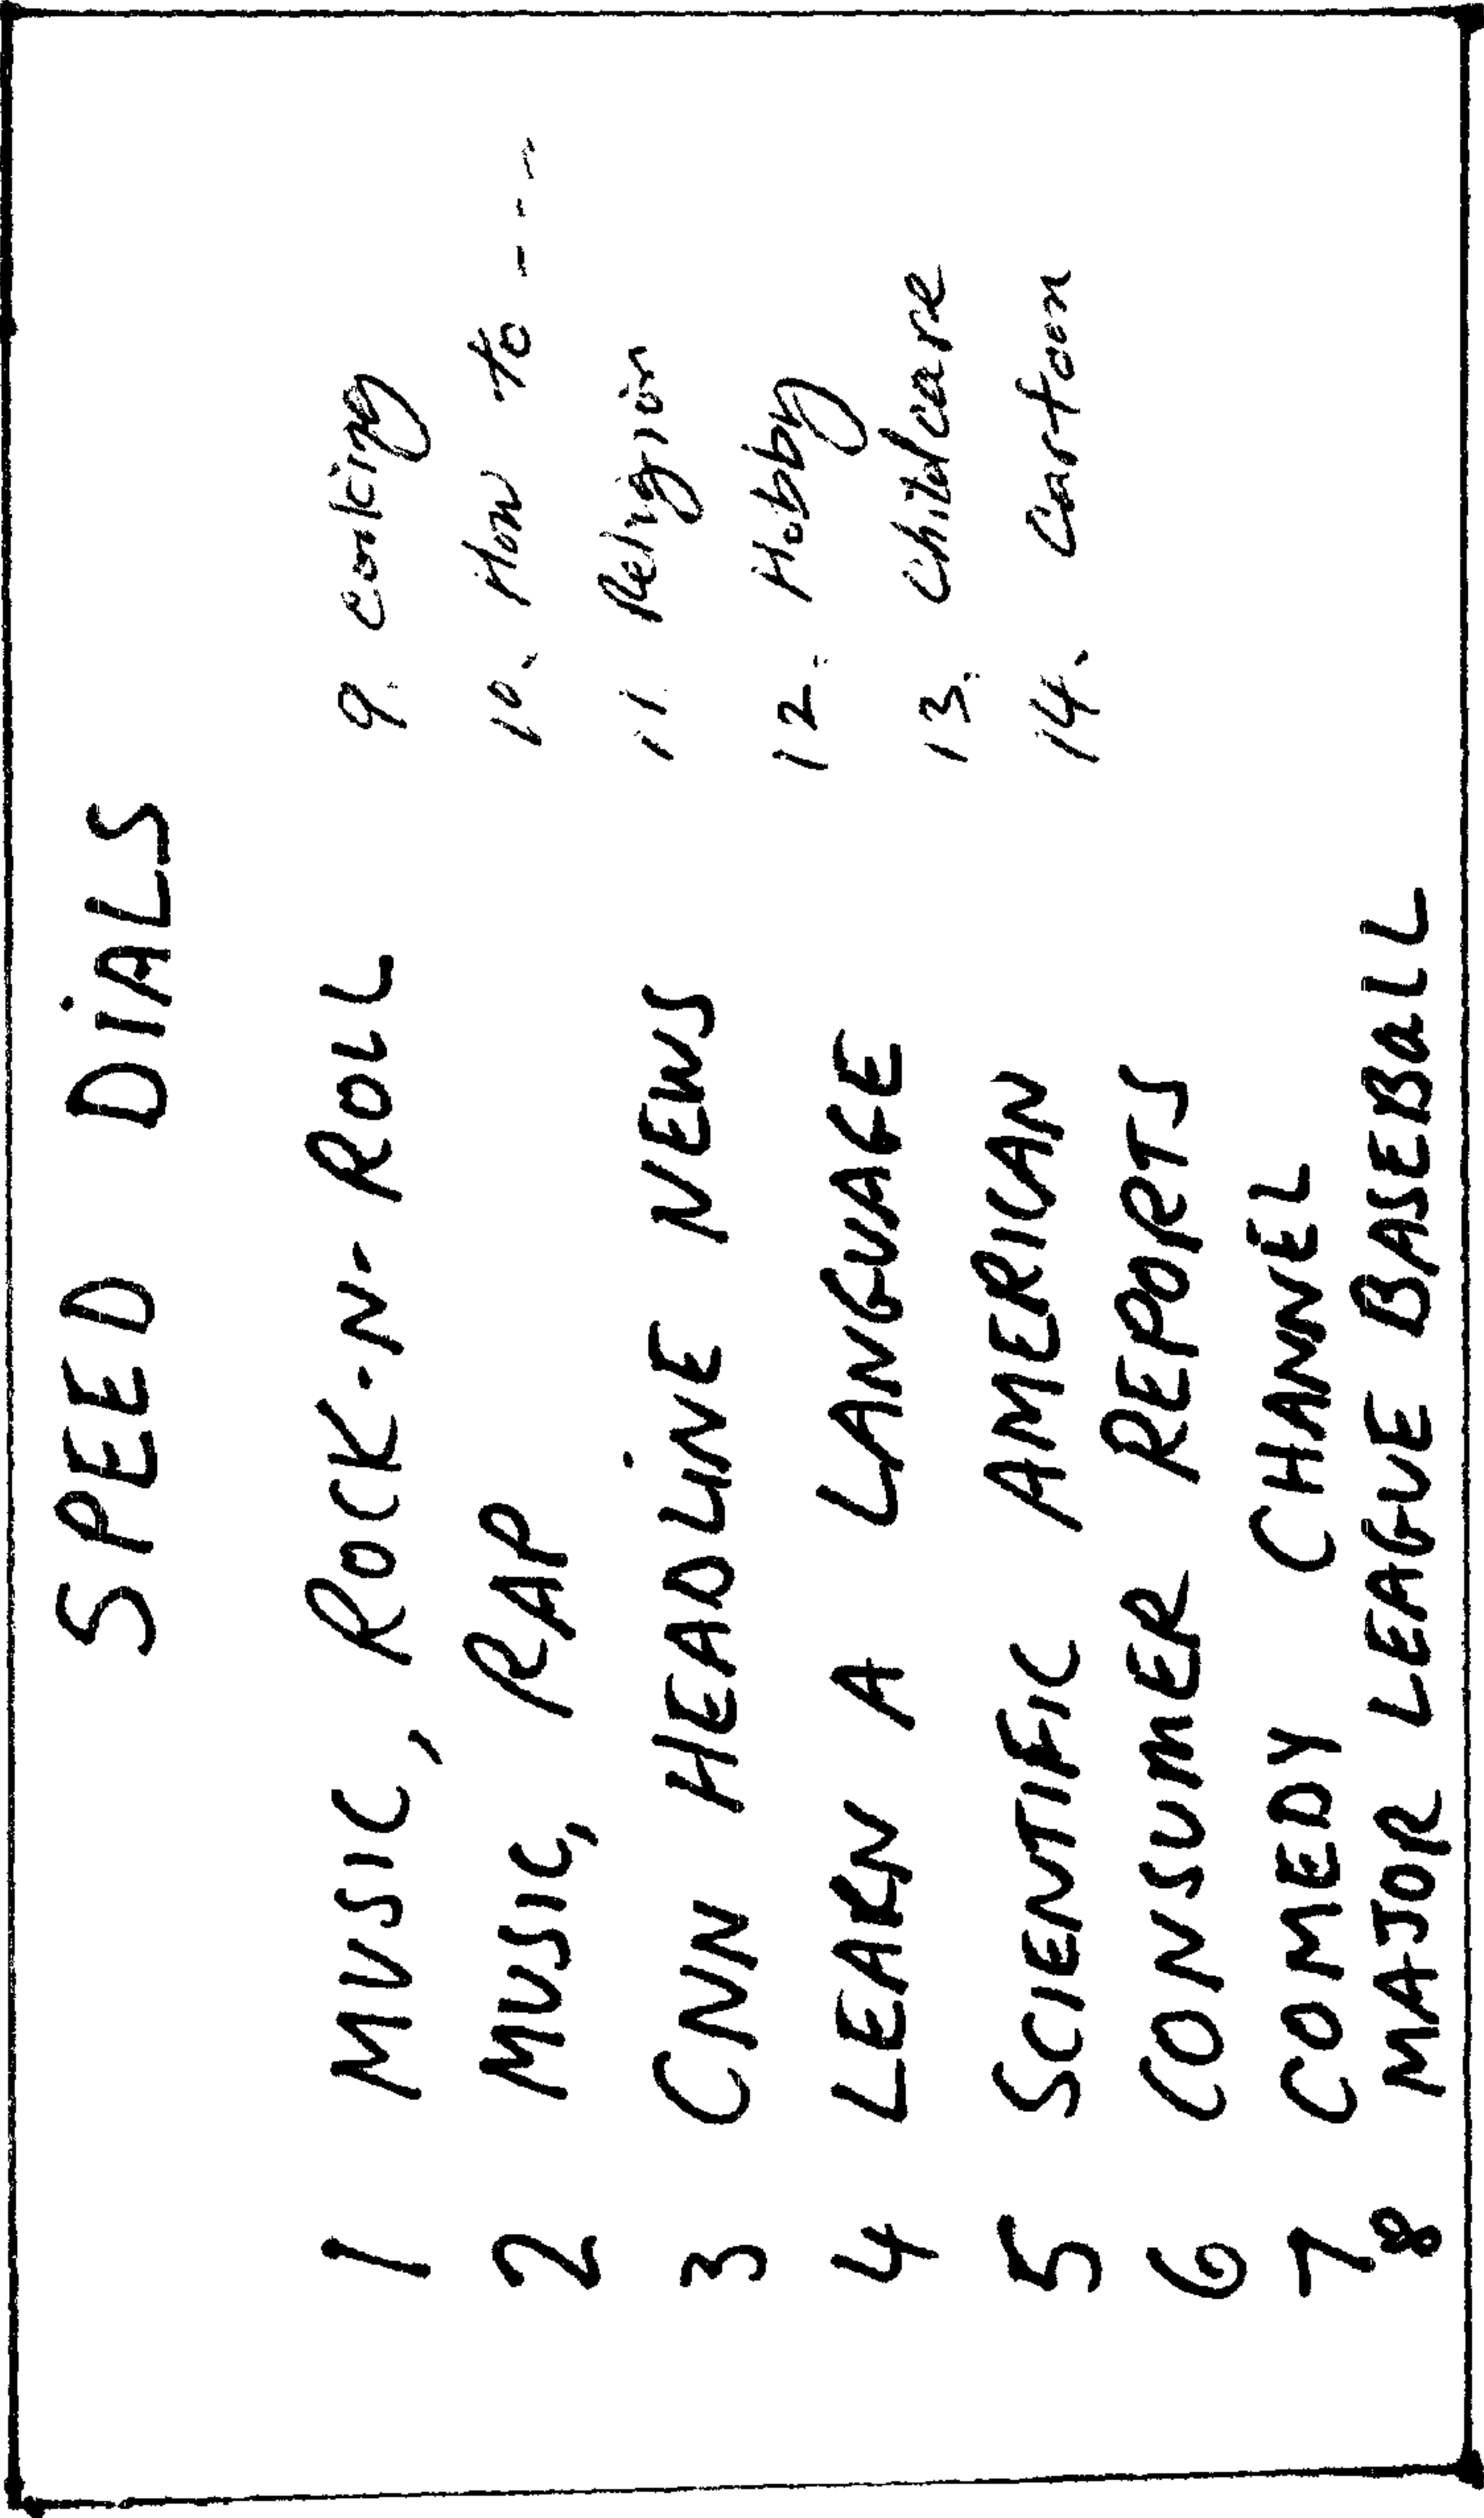 SPEED DiALS
1 MUSIC, ROCK-N-ROLL
2 MUSIC, RAP
3 CNN HEADLiNE NEWS
4 LEARN A LANGUAGE
5 SCIENTIFIC AMERICAN
6 CONSUMER REPORTS
7 COMEDY CHANNEL
8 MAJOR LEAGUE BASEBaLL
9. cooking
10. How to ---
11. Religion
12. Hobby
13. Child care
14. Cartoon